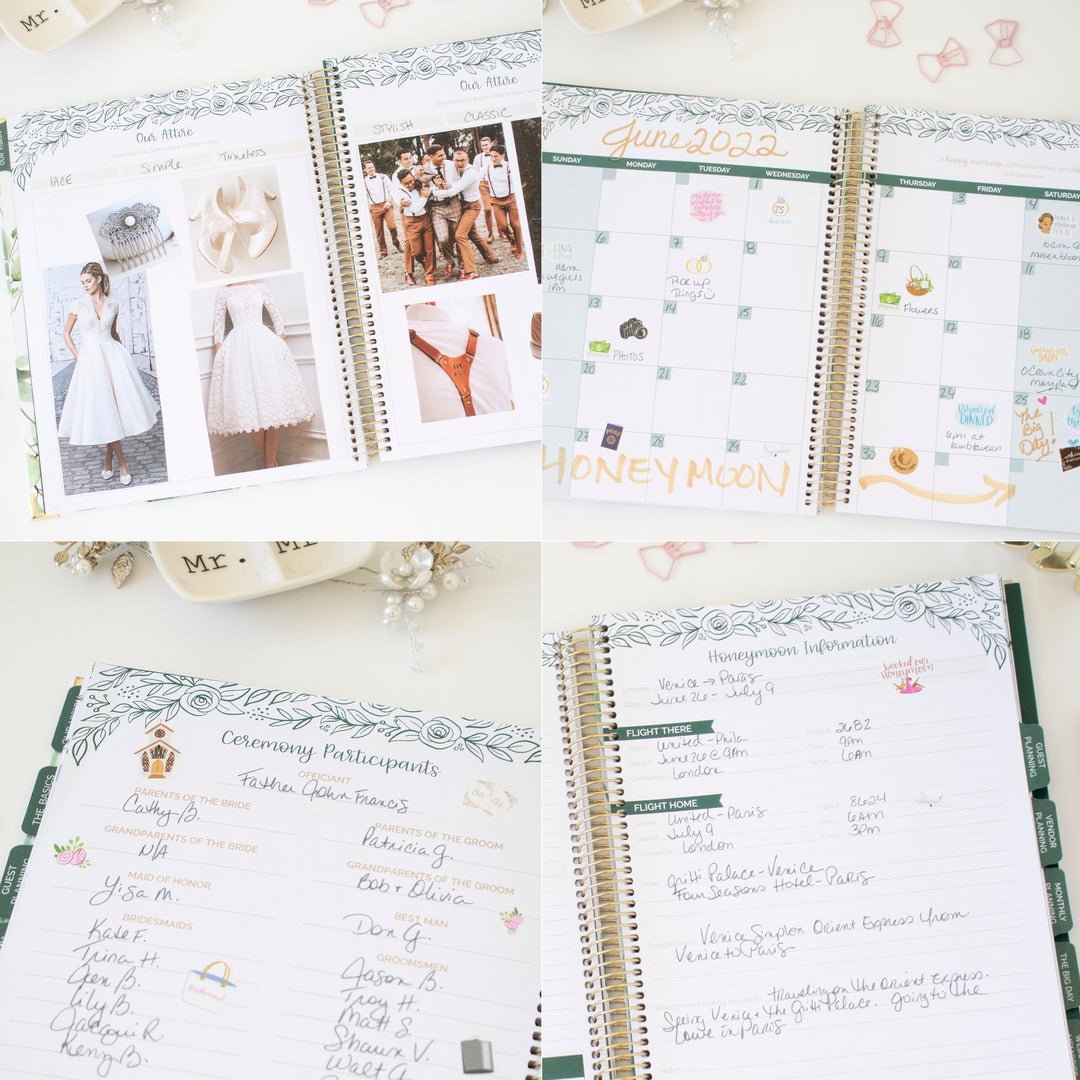 Mr.
Our Attire
LACE
Simple
Timeless
Our Attire
STYLISH
CLASSIC
June 2022
SUNDAY
MONDAY
TUESDAY
WEDNESDAY
1
25
6
7
8
FINAL
11am
w/girls
1pm
Pick up
Rings
13
14
15
PHOTOS
20
21
22
27
28
29
HONEYMOON
a happy marriage is the union of two good
THURSDAY
FRIDAY
SATURDAY
2
3
4
10am @
9
10
Flowers
16
17
18
bachelorette
PARTY
Ocean City
Maryland
23
24
25
Rehearsal
DINNER
6pm at
The
Big
Day!
30
Mr.
THE BASICS
GUEST
PLANNING
Ceremony Participants
OFFICIANT
Father John Francis
PARENTS OF THE BRIDE
Cathy B.
PARENTS OF THE GROOM
Patricia G.
GRANDPARENTS OF THE BRIDE
N/A
GRANDPARENTS OF THE GROOM
Bob + Olivia
MAID OF HONOR
Lisa M.
BEST MAN
Don G.
BRIDESMAIDS
Kate F.
Trina H.
Jen B.
Lily B.
Jacqui R.
Keny B.
GROOMSMEN
Jason B.
Troy H.
Matt S.
Shawn V.
Walt
Honeymoon Information
booked our
honeymoon
Location
Venice → Paris
Dates
June 26 - July 9
FLIGHT THERE
United - Phila
Flight #
2682
Depart
June 26 @ 9AM
Time
9pm
Connection
London
Arrive
6am
FLIGHT HOME
United - Paris
Flight #
8624
Depart
July 9
Time
6am
Connection
London
Arrive
3pm
Hotel
Gritti Palace - Venice
Four Seasons Hotel - Paris
Transportation
Venice Simplon Orient Express from
Venice to Paris
What I'm most looking forward to
traveling on the Orient Express.
Seeing Venice + the Gritti Palace. Going to the
Louvre in Paris
Notes
GUEST
PLANNING
VENDOR
PLANNING
MONTHLY
PLANNING
THE BIG DAY